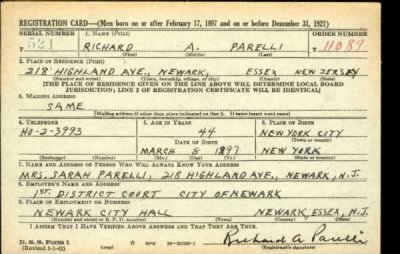 REGISTRATION CARD—(Men born on or after February 17, 1897 and on or before December 31, 1921)
SERIAL NUMBER 1. NAME (Print) ORDER NUMBER
T 521 RICHARD A. PARELLI 11089
(First) (Middle) (Last)
2. PLACE OF RESIDENCE (Print)
218 HIGHLAND AVE., NEWARK, ESSEX NEW JERSEY
(Number and street) (Town, township, village, or city) (County) (State)
[THE PLACE OF RESIDENCE GIVEN ON THE LINE ABOVE WILL DETERMINE LOCAL BOARD
JURISDICTION; LINE 2 OF REGISTRATION CERTIFICATE WILL BE IDENTICAL]
3. MAILING ADDRESS
SAME
[Mailing address if other than place indicated on line 2. If same insert word same]
4. TELEPHONE 5. AGE IN YEARS 6. PLACE OF BIRTH
HU-2-3993 44 NEW YORK CITY
DATE OF BIRTH (Town or county)
MARCH 8 1897 NEW YORK
(Mo.) (Day) (Yr.) (State or country)
7. NAME AND ADDRESS OF PERSON WHO WILL ALWAYS KNOW YOUR ADDRESS
MRS. SARAH PARELLI, 218 HIGHLAND AVE., NEWARK, N.J.
8. EMPLOYER'S NAME AND ADDRESS
1ST. DISTRICT COURT CITY OF NEWARK
9. PLACE OF EMPLOYMENT OR BUSINESS
NEWARK CITY HALL NEWARK, ESSEX, N.J.
(Number and street or R. F. D. number) (Town) (County) (State)
I AFFIRM THAT I HAVE VERIFIED ABOVE ANSWERS AND THAT THEY ARE TRUE.
D. S. S. Form 1 Richard A. Parelli
(Revised 1-1-42) (over)